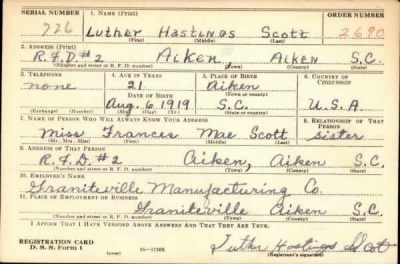 SERIAL NUMBER 1. NAME (Print) ORDER NUMBER
726 Luther Hastings Scott 2690
(First) (Middle) (Last)
2. ADDRESS (Print)
R.F.D. #2 Aiken, Aiken S.C.
(Number and street or R. F. D. number) (Town) (County) (State)
3. TELEPHONE 4. AGE IN YEARS 5. PLACE OF BIRTH 6. COUNTRY OF CITIZENSHIP
none 21 Aiken
DATE OF BIRTH (Town or county)
Aug. 6, 1919 S.C. U.S.A
(Exchange) (Number) (Mo.) (Day) (Yr.) (State or country)
7. NAME OF PERSON WHO WILL ALWAYS KNOW YOUR ADDRESS 8. RELATIONSHIP OF THAT PERSON
Miss Frances Mae Scott sister
(Mr., Mrs., Miss) (First) (Middle) (Last)
9. ADDRESS OF THAT PERSON
R.F.D. #2 Aiken, Aiken S.C.
(Number and street or R. F. D. number) (Town) (County) (State)
10. EMPLOYER'S NAME
Graniteville Manufacturing Co.
11. PLACE OF EMPLOYMENT OR BUSINESS
Graniteville Aiken S.C.
(Number and street or R. F. D. number) (Town) (County) (State)
I AFFIRM THAT I HAVE VERIFIED ABOVE ANSWERS AND THAT THEY ARE TRUE.
REGISTRATION CARD
D. S. S. Form 1 Luther Hastings Scott
(Registrant's signature)